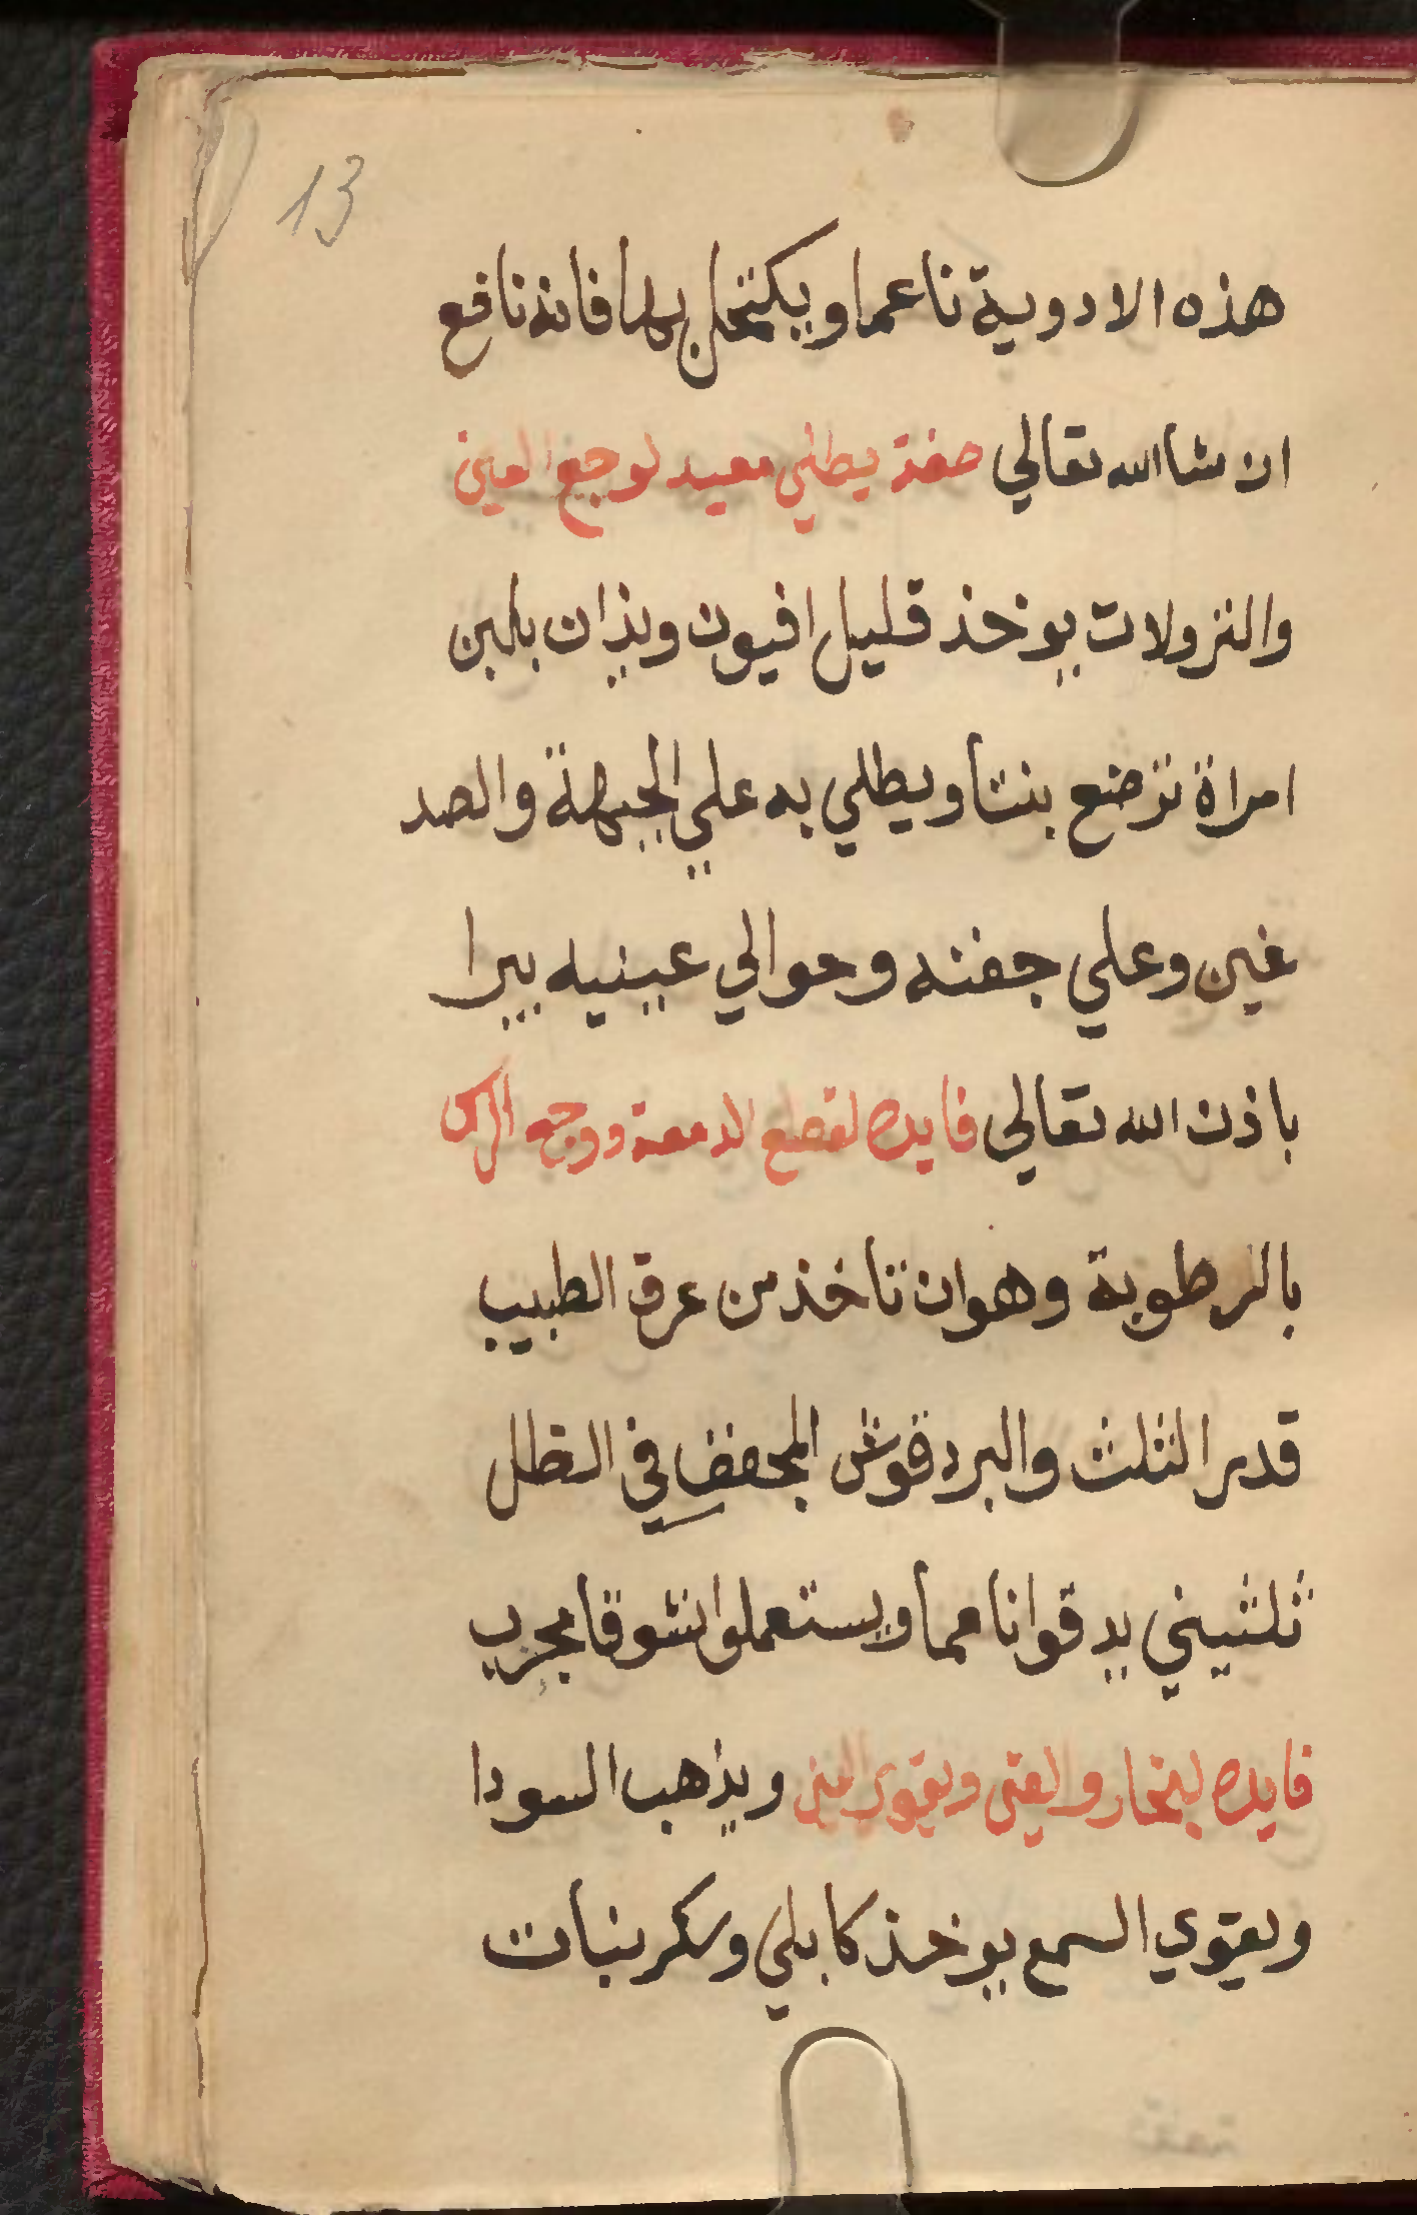 13
هذه الادوية ناعما ويكتحل بها فانه نافع
ان شاالله تعالي صفة يطلي معيد لوجع العين
والنزولات يوخذ قليل افيون ويذان بلبن
امراة ترضع بنتا ويطلي به علي الجبهة والصد
غين وعلي جفنه وحوالي عينيه يبرا
باذن الله تعالي فايده لقطع الدمعة ووجع الراس
بالرطوبة وهوان تاخذ من عرق الطبيب
قدر الثلث والبردقوش المجفف في الظل
ثلثيني يدقوا ناعما ويستعملوا نشوقا مجرب
فايده لبخار والقي ويقوي ويذهب السودا
ويقوي السمع يوخذ كابلي وسكر بنبات